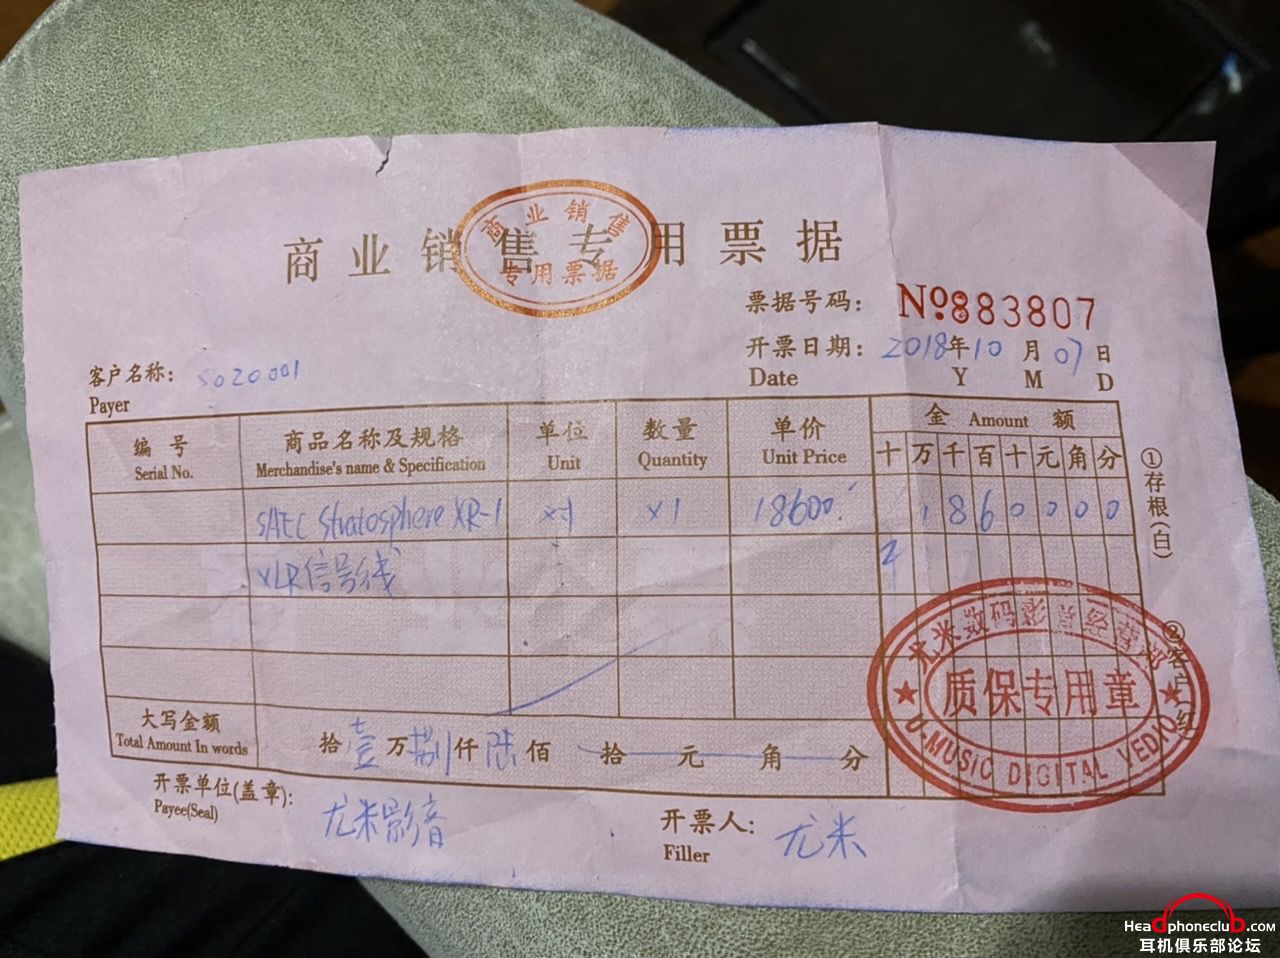 商业销售专用票据
商业销售
专用票据
票据号码: №883807
开票日期: 2018年10月07日
Date Y M D
客户名称: S020001
Payer
编号 商品名称及规格 单位 数量 单价 金 Amount 额
Serial No. Merchandise's name & Specification Unit Quantity Unit Price 十 万 千 百 十 元 角 分
SAEC Stratosphere XR-1 x1 x1 18600. 1 8 6 0 0 0 0
XLR信号线
①存根(白)
②客户(红)
尤米数码影音经营部
质保专用章
U-MUSIC DIGITAL VEDIO
大写金额 拾壹万捌仟陆佰 拾 元 角 分
Total Amount In words
开票单位(盖章): 尤米影音 开票人: 尤米
Payee(Seal) Filler
Headphoneclub.com
耳机俱乐部论坛